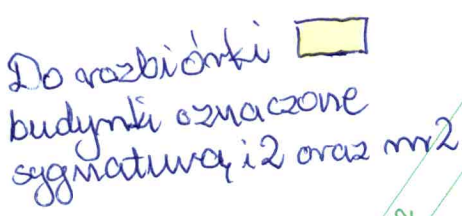 Do rozbiórki
budynki oznaczone
sygnaturą i2 oraz m2